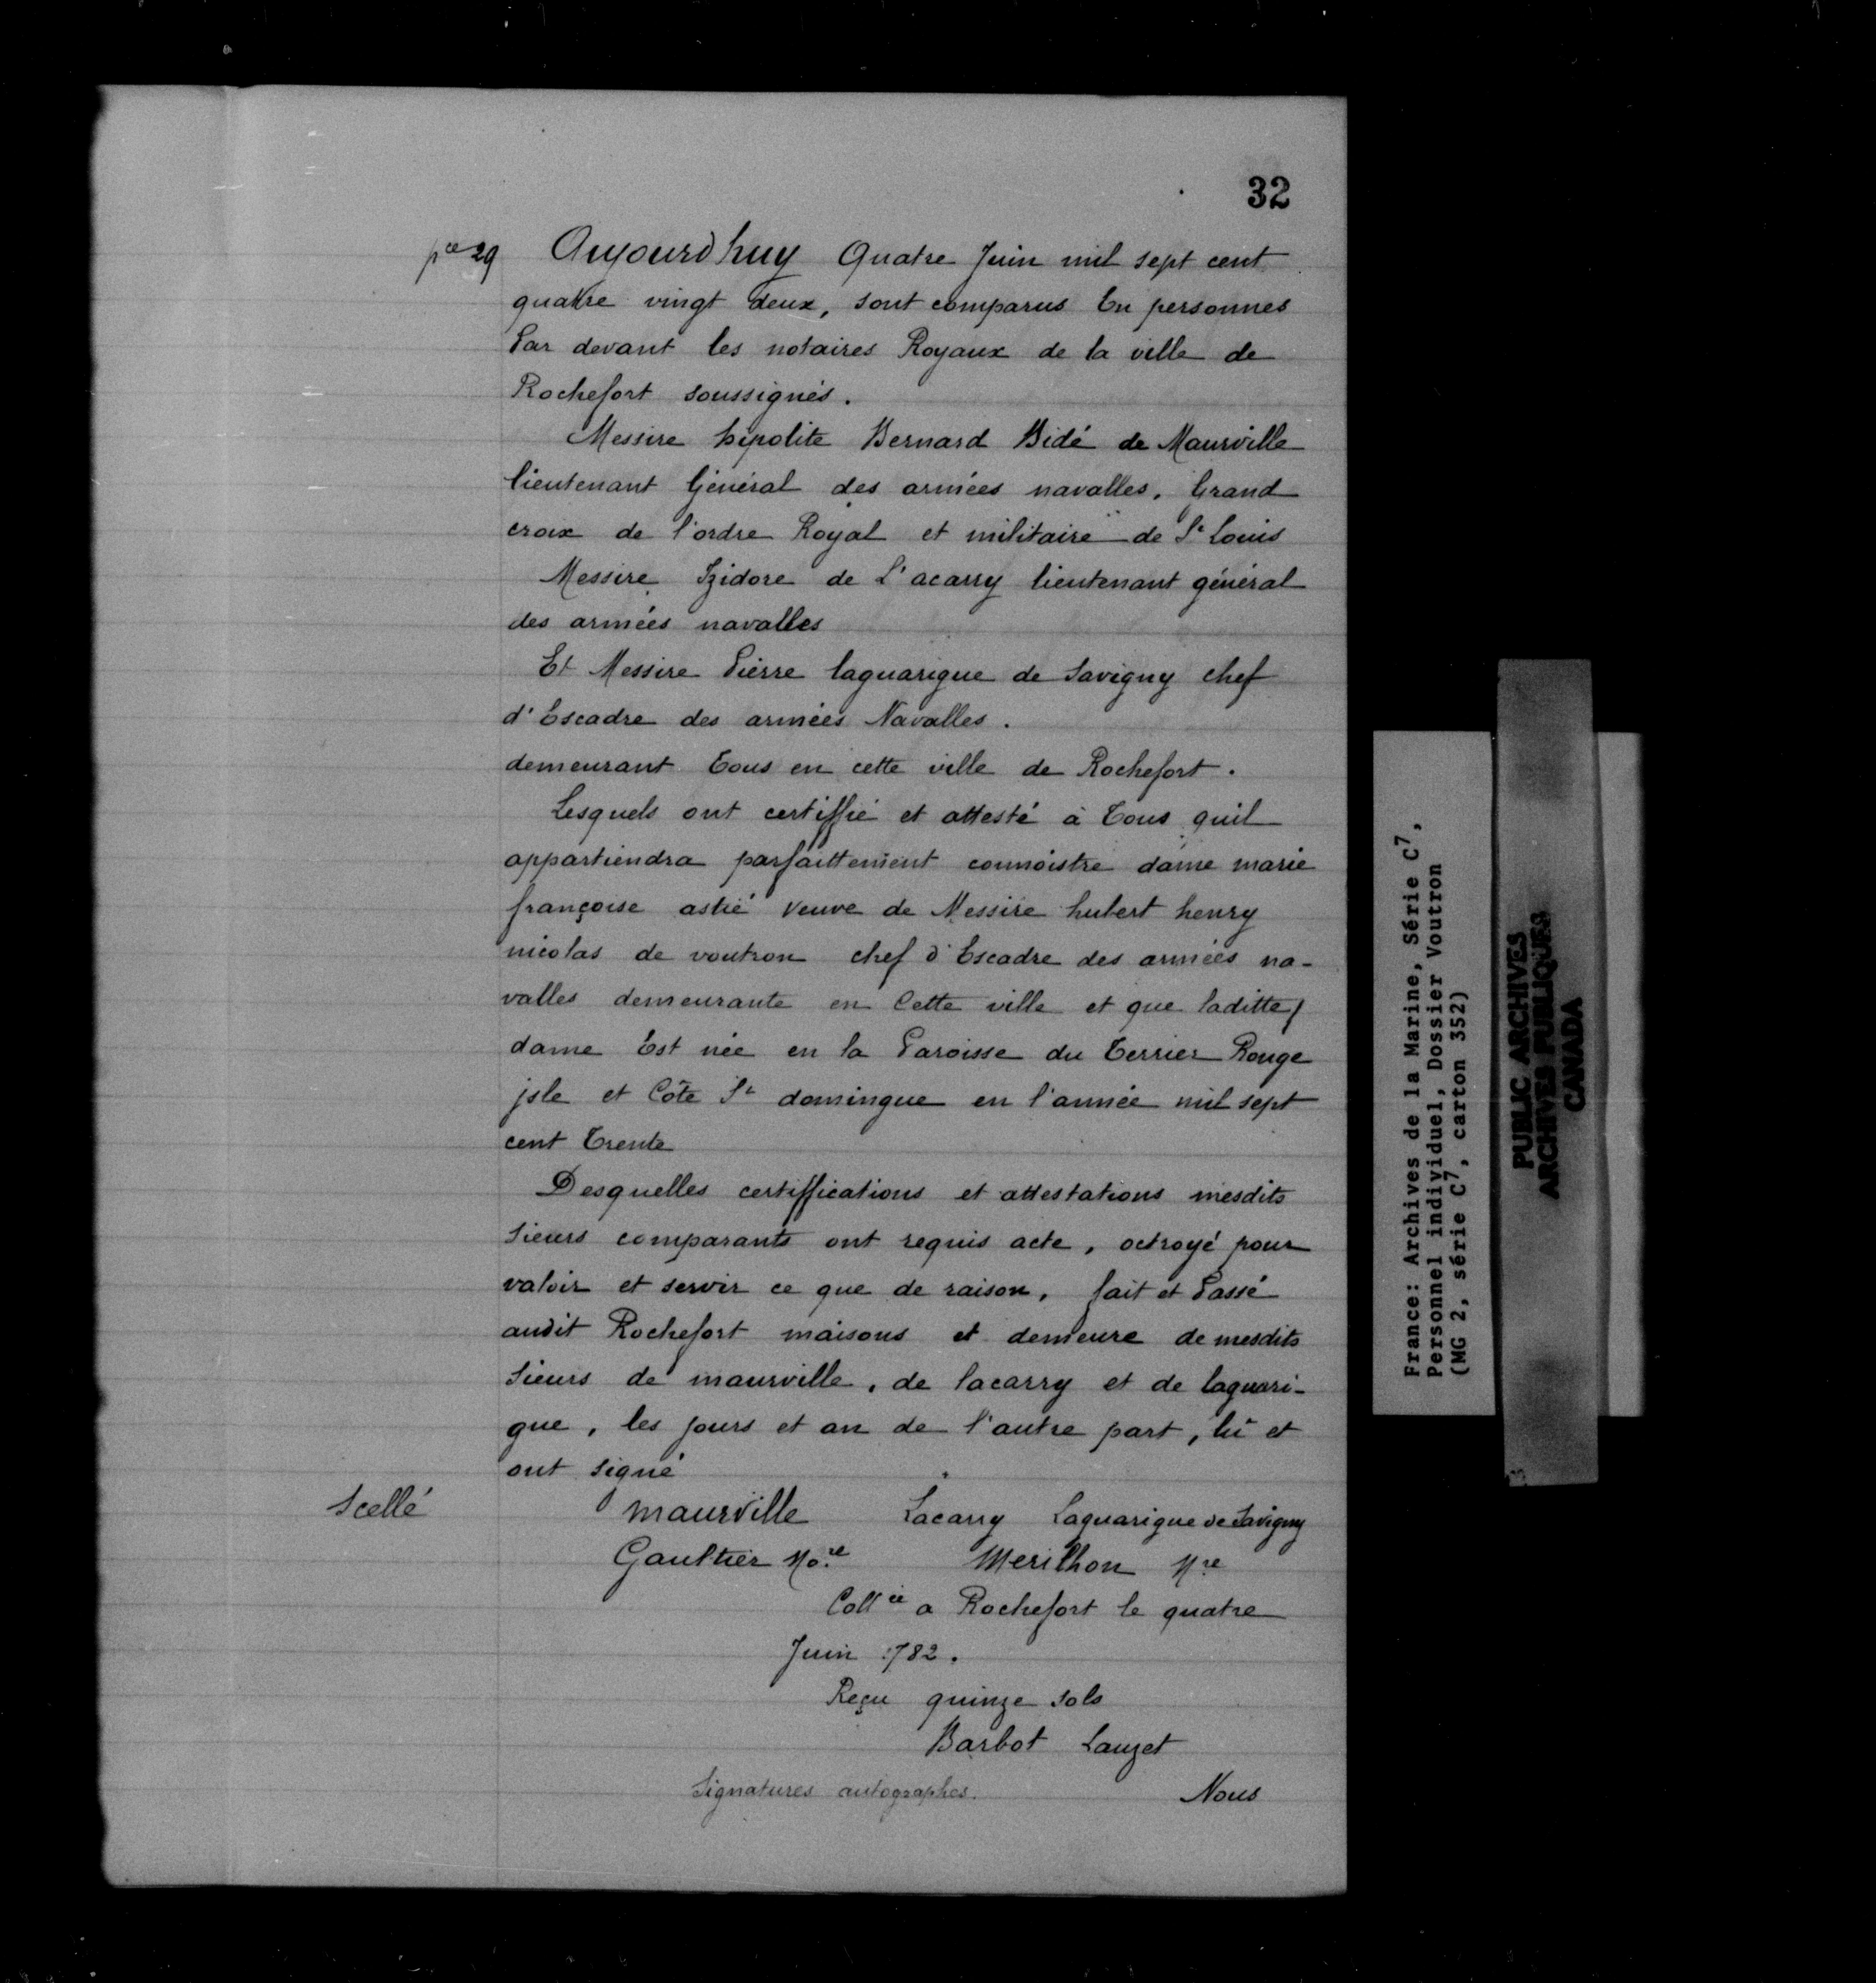 32
pce 29 Aujourdhuy Quatre Juin mil sept cent
quatre vingt deux, sont comparus En personnes
Par devant les notaires Royaux de la ville de
Rochefort soussignés.
Messire hipolite Bernard Bidé de Maurville
lieutenant Général des armées navalles, Grand
croix de l'ordre Royal et militaire de St Louis
Messire Izidore de L'acarry lieutenant général
des armées navalles
Et Messire Pierre laguarigue de Savigny chef
d'Escadre des armées Navalles.
demeurant Tous en cette ville de Rochefort.
Lesquels ont certiffié et attesté à Tous quil
appartiendra parfaittement connoistre dame marie
françoise astié veuve de Messire hubert henry
nicolas de voutron chef d'Escadre des armées na-
valles demeurante en Cette ville et que laditte
dame Est née en la Paroisse du Terrier Rouge
jsle et Côte St domingue en l'année mil sept
cent Trente
Desquelles certiffications et attestations mesdits
Sieurs comparants ont requis acte, octroyé pour
valoir et servir ce que de raison, fait et Passé
audit Rochefort maisons et demeure de mesdits
Sieurs de maurville, de lacarry et de laguari-
gue, les jours et an de l'autre part, lû et
ont signé
Scellé maurville Lacarry Laguarigue de Savigny
Gaultier No.re Merilhon Nre
Collée a Rochefort le quatre
Juin 1782.
Reçu quinze sols
Barbot Lauzet
Signatures autographes. Nous
France: Archives de la Marine, Série C7,
Personnel individuel, Dossier Voutron
(MG 2, série C7, carton 352)
PUBLIC ARCHIVES
ARCHIVES PUBLIQUES
CANADA